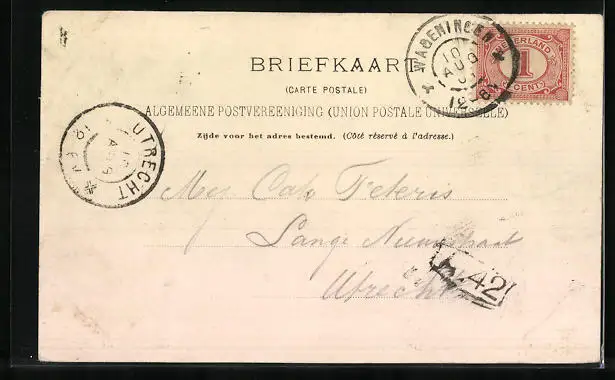 BRIEFKAART
(CARTE POSTALE)
ALGEMEENE POSTVEREENIGING (UNION POSTALE UNIVERSELLE)
Zijde voor het adres bestemd. (Côté réservé à l'adresse.)
WAGENINGEN
10 AUG
12
NEDERLAND
1
CENT
UTRECHT
AUG
Mej. Cato Peteris
Lange Nieuwstraat
Utrecht
42